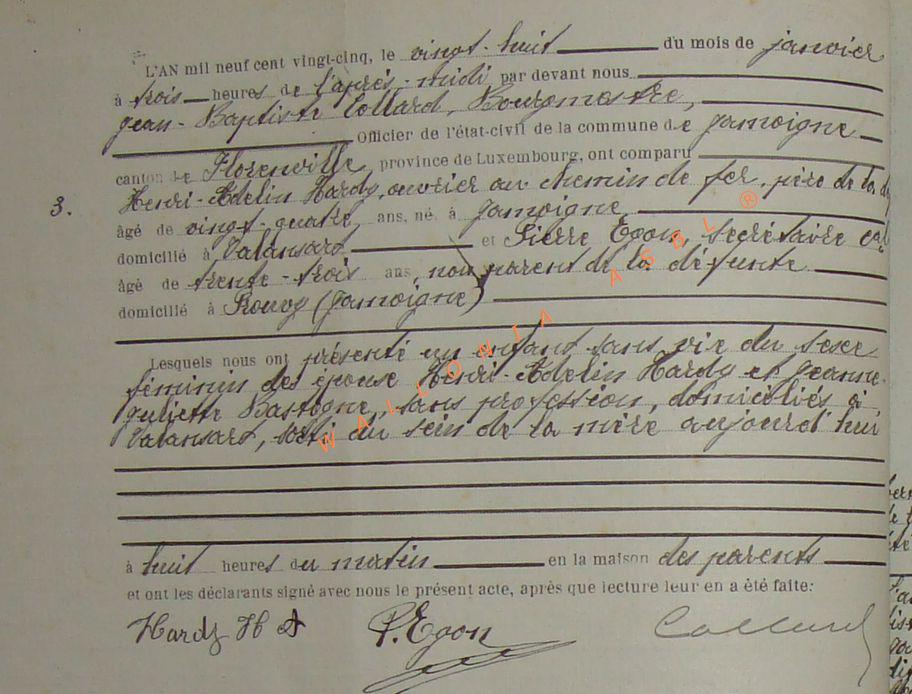 L'AN mil neuf cent vingt-cinq, le vingt-huit du mois de janvier
à trois heures de l'après-midi par devant nous
Jean-Baptiste Collard, Bourgmestre,
Officier de l'état-civil de la commune de Jamoigne
canton de Florenville, province de Luxembourg, ont comparu
Henri-Adelin Hardy, ouvrier au chemin de fer, père de la
3. âgé de vingt-quatre ans, né à Jamoigne
domicilié à Valansart et Pierre Egon, secrétaire
âgé de trente-trois ans, non parent de la défunte
domicilié à Prouvy (Jamoigne)
Lesquels nous ont présenté un enfant sans vie du sexe
féminin des époux Henri-Adelin Hardy et Jeanne-
Juliette Bastogne, sans profession, domiciliés à
Valansart, sorti du sein de la mère aujourd'hui
à huit heures du matin en la maison des parents
et ont les déclarants signé avec nous le présent acte, après que lecture leur en a été faite:
Hardy H A P. Egon Collard
WALLONIA ASBL ®